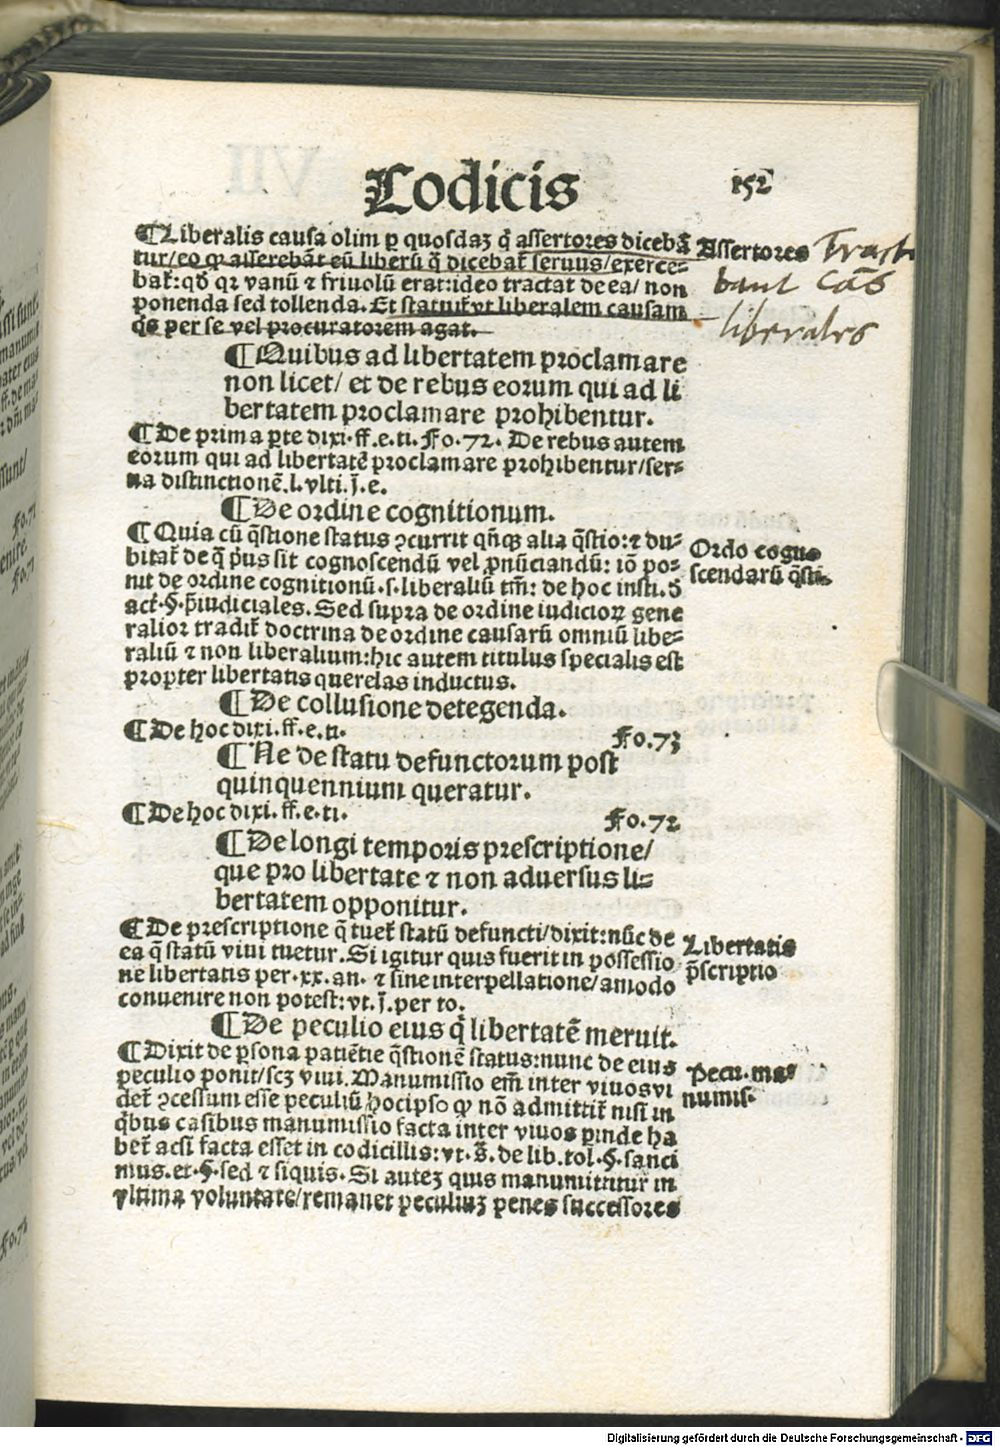 Codicis
152
¶Liberalis causa olim ꝑ quosdaʒ q̇ assertores dicebā
tur/eo ꝙ asserebāt eū liberū q̄ dicebat̄ seruus/exerce⸗
bat̄: qđ qꝛ vanū ⁊ friuolū erat: ideo tractat de ea/ non
ponenda sed tollenda. Et statuit̄ vt liberalem causam
q̇s per se vel procuratorem agat.
Assertores
Tract
bant cās
liberales
¶Quibus ad libertatem proclamare
non licet/ et de rebus eorum qui ad li
bertatem proclamare prohibentur.
¶De prima ꝑte dixi.ff.e.ti. Fo.72. De rebus autem
eorum qui ad libertatē proclamare prohibentur/ser⸗
ua distinctionē.l.vlti.j̄.e.
¶De ordine cognitionum.
¶Quia cū q̄stione status ꝯcurrit qn̄qꝫ alia q̄stio:⁊ du⸗
bitat̄ de q̄ p̄us sit cognoscendū vel ꝓnūciandū: iō po⸗
nit de ordine cognitionū.s.liberaliū tm̄: de hoc insti.ð
act̄.§.p̄iudiciales. Sed supra de ordine iudicioꝝ gene
ralior tradit̄ doctrina de ordine causarū omniū libe⸗
raliū ⁊ non liberalium:hic autem titulus specialis est
propter libertatis querelas inductus.
Ordo cogno
scendarū q̄sti.
¶De collusione detegenda.
¶De hoc dixi.ff.e.ti. Fo.73
¶Ne de statu defunctorum post
quinquennium queratur.
¶De hoc dixi.ff.e.ti. Fo.72
¶De longi temporis prescriptione/
que pro libertate ⁊ non aduersus li⸗
bertatem opponitur.
¶De prescriptione q̄ tuet̄ statū defuncti/dixit:nūc de
ea q̄ statū viui tuetur. Si igitur quis fuerit in possessio
ne libertatis per.xx.an. ⁊ sine interpellatione/amodo
conuenire non potest:vt.j̄.per to.
Libertatis
p̄scriptio
¶De peculio eius q̇ libertatē meruit.
¶Dixit de ꝑsona patiētie q̄stionē status:nunc de eius
peculio ponit/scʒ viui. Manumissio em̄ inter viuos vi
det̄ ꝯcessum esse peculiū hocipso ꝙ nō admittit̄ nisi in
q̇bus casibus manumissio facta inter viuos ꝑinde ha
bet̄ acsi facta esset in codicillis:vt.s̄.de lib.tol.§.sanci
mus.et.§.sed ⁊ siquis. Si auteʒ quis manumittitur in
vltima voluntate/remanet peculiuʒ penes successores
Pecu.ma⸗
numis.
Digitalisierung gefördert durch die Deutsche Forschungsgemeinschaft - DFG